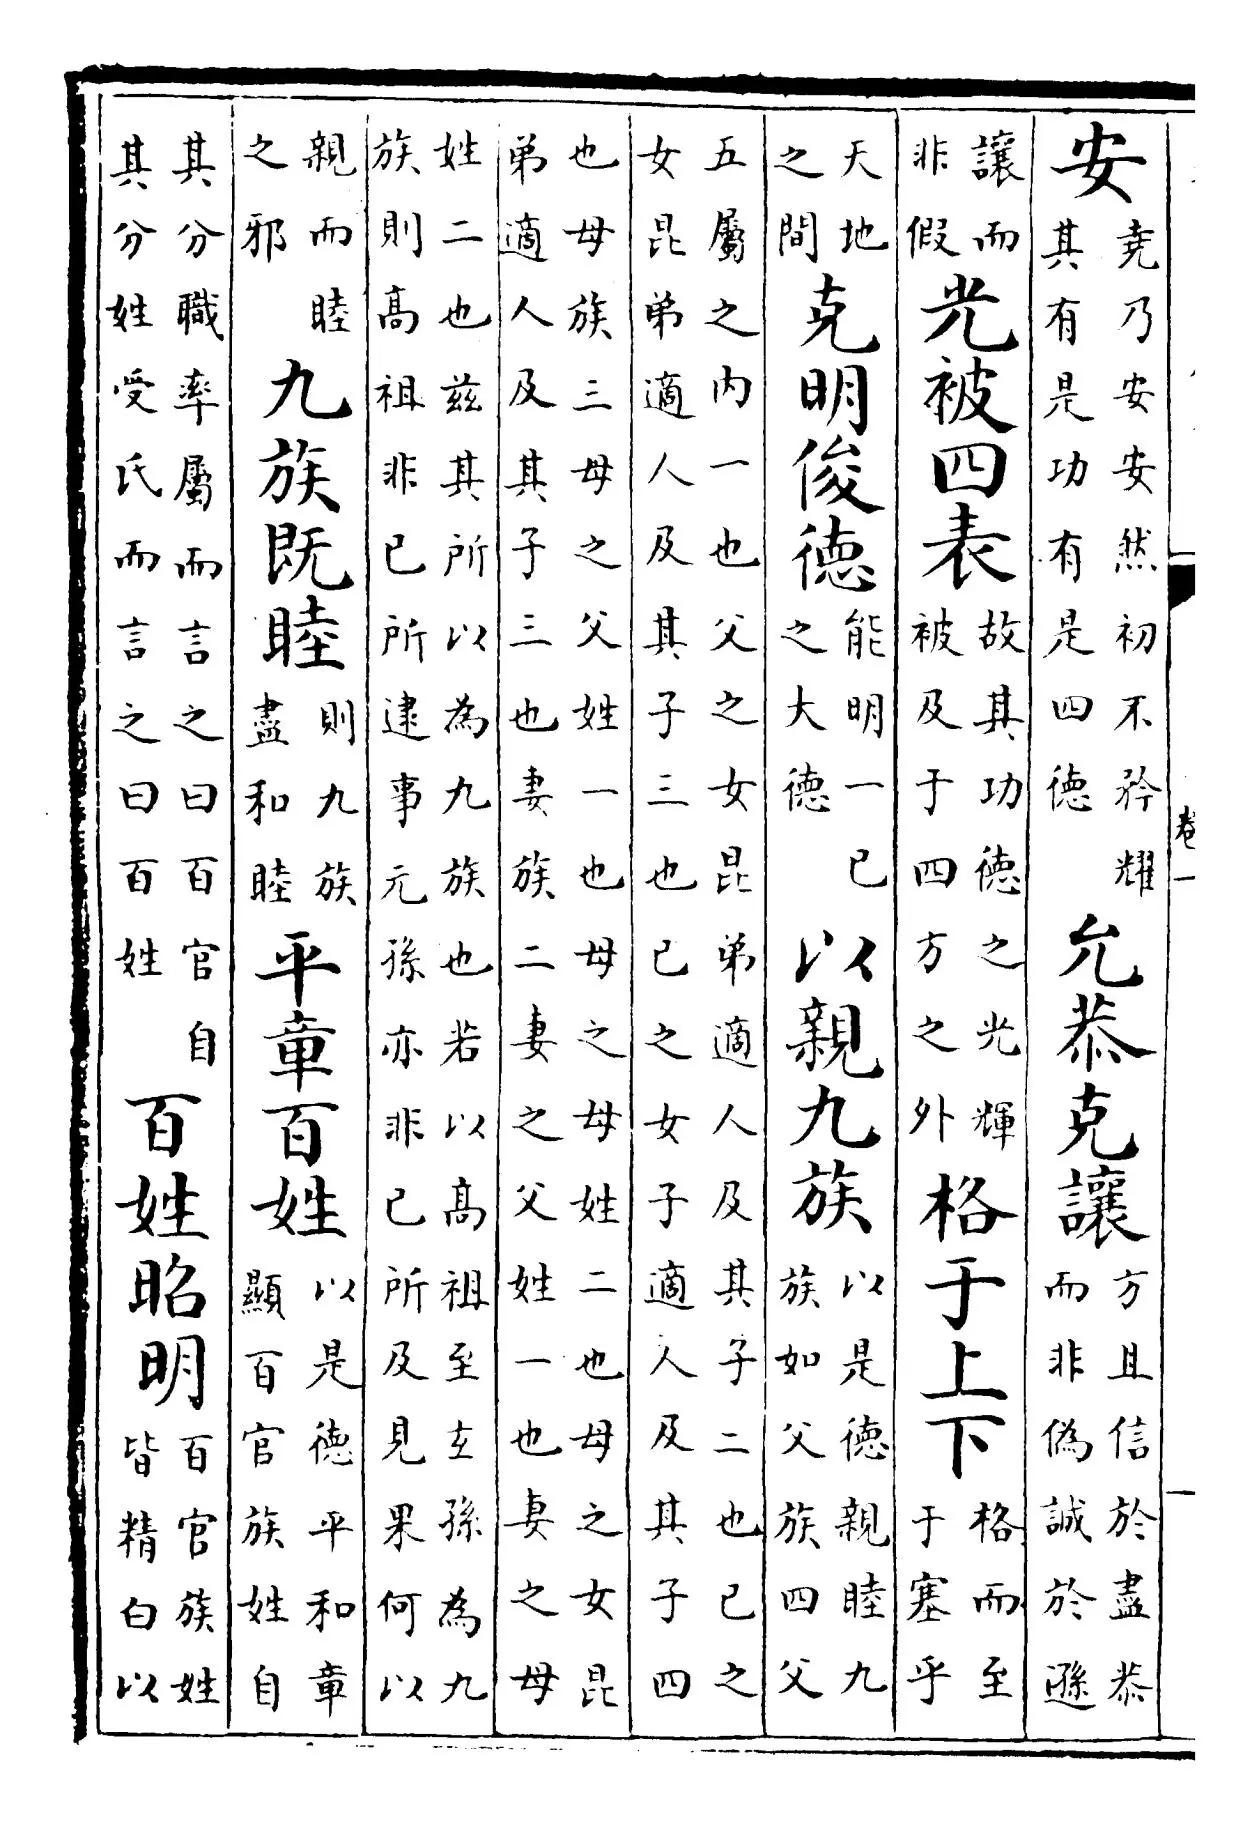 安
堯乃安安然初不矜耀
其有是功有是四德
允恭克讓
方且信於盡恭
而非偽誠於遜
讓而
非假
光被四表
故其功德之光輝
被及于四方之外
格于上下
格而至
于塞乎
天地
之間
克明俊德
能明一已
之大德
以親九族
以是德親睦九
族如父族四父
五屬之内一也父之女昆弟適人及其子二也已之
女昆弟適人及其子三也已之女子適人及其子四
也母族三母之父姓一也母之母姓二也母之女昆
弟適人及其子三也妻族二妻之父姓一也妻之母
姓二也兹其所以為九族也若以高祖至玄孫為九
族則高祖非已所逮事元孫亦非已所及見果何以
親而睦
之邪
九族既睦
則九族
盡和睦
平章百姓
以是德平和章
顯百官族姓自
其分職率屬而言之曰百官自
其分姓受氏而言之曰百姓
百姓昭明
百官族姓
皆精白以
卷一
一